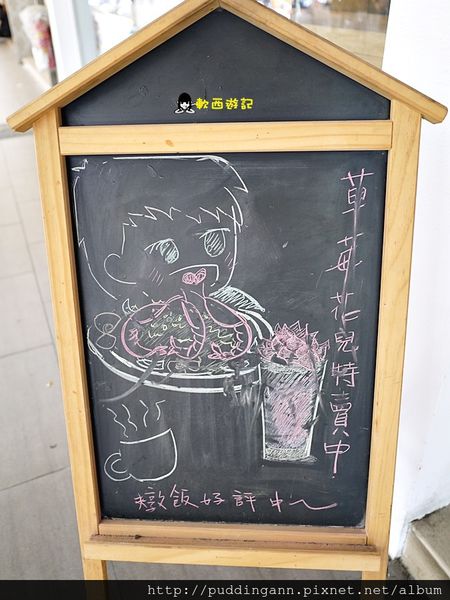 軟西遊記
草莓花兒特賣中
燉飯好評中～
http://puddingann.pixnet.net/album